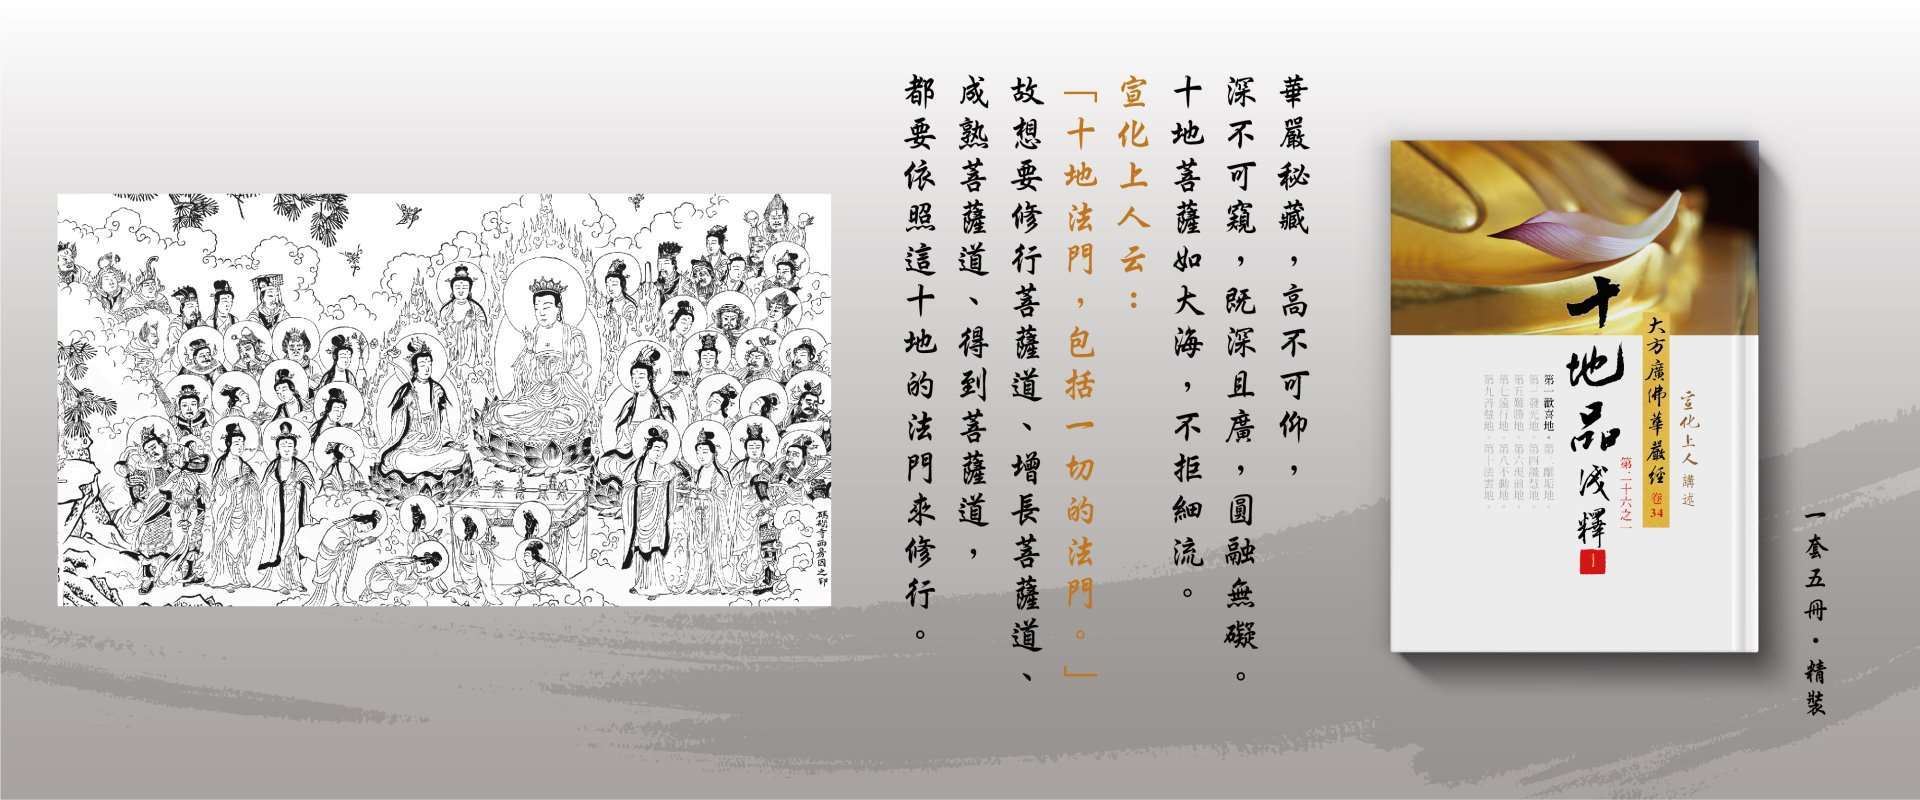 一套五冊・精裝
宣化上人 講述
大方廣佛華嚴經 卷34
第二十六之一
十地品淺釋
第一歡喜地・第二離垢地・
第三發光地・第四焰慧地・
第五難勝地・第六現前地・
第七遠行地・第八不動地・
第九善慧地・第十法雲地・
華嚴秘藏，高不可仰，
深不可窺，既深且廣，圓融無礙。
十地菩薩如大海，不拒細流。
宣化上人云：
「十地法門，包括一切的法門。」
故想要修行菩薩道、增長菩薩道、
成熟菩薩道、得到菩薩道，
都要依照這十地的法門來修行。